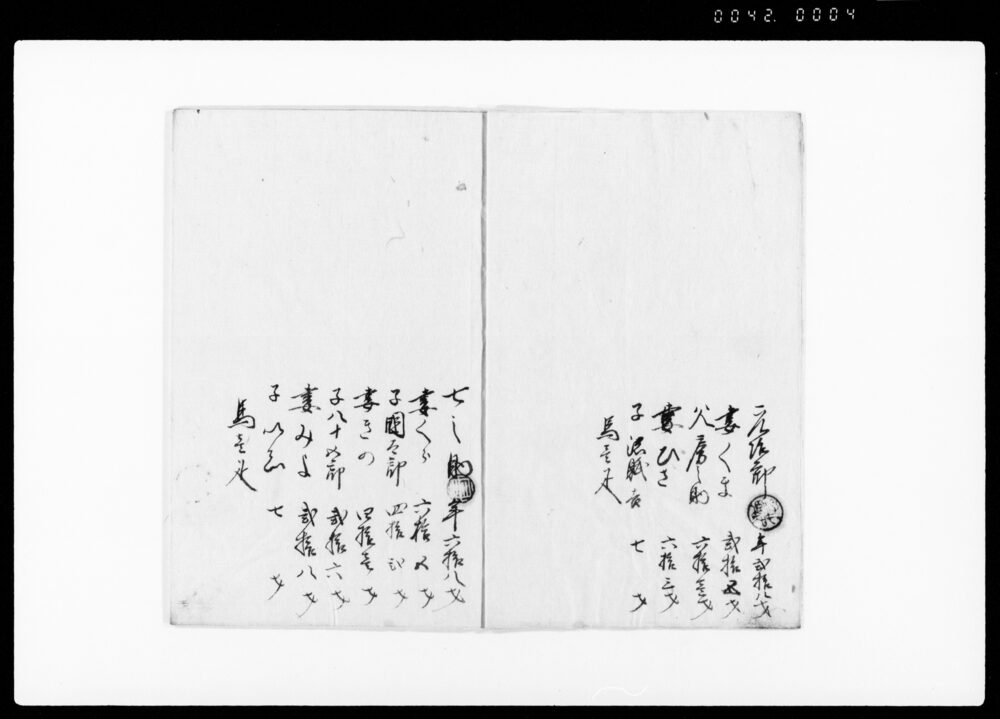 0042. 0004
治郎 年弐拾八才
妻くま 弐拾五才
父 房之助 六拾壱才
妻ひさ 六拾三才
子 七才
馬壱疋
七之助 年六拾八才
妻くら 六拾五才
子 四拾弐才
妻きの 四拾壱才
子八十五郎 弐拾六才
妻みよ 弐拾八才
子 七才
馬壱疋